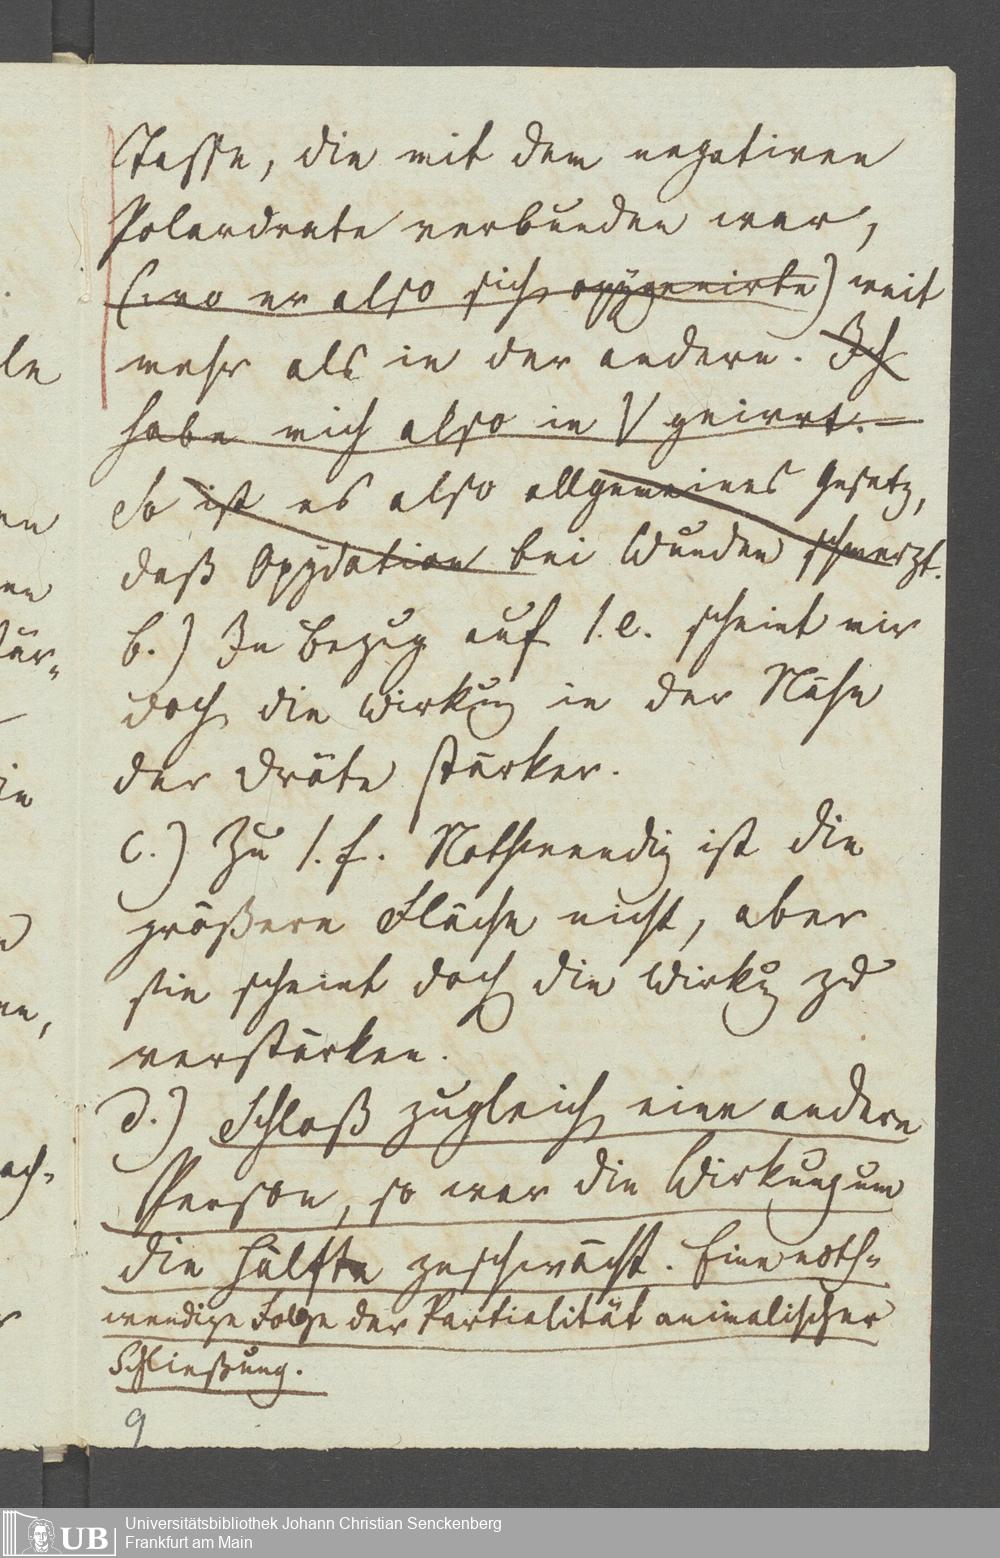 Tasse, die mit dem negativen
Polardrate verbunden war,
(wo er also sich oxÿgenirte) weit
mehr als in der andern. Ich
habe mich also in V geirrt. –
So ist es also allgemeines Gesetz,
daß Oxÿdation bei Wunden schmerzt.
b.) In Bezug auf 1.e. scheint mir
doch die Wirkung in der Nähe
der Dräte stärker.
c.) Zu 1.f. Nothwendig ist die
größere Fläche nicht, aber
sie scheint doch die Wirkung zu
verstärken.
d.) Schloß zugleich eine andere
Person, so war die Wirkung um
die Hälfte geschwächt. Eine noth-
wendige Folge der Partialität animalischer
Schließung.
9
le
en
en
tür-
in
en,
ach-
r
UB
Universitätsbibliothek Johann Christian Senckenberg
Frankfurt am Main